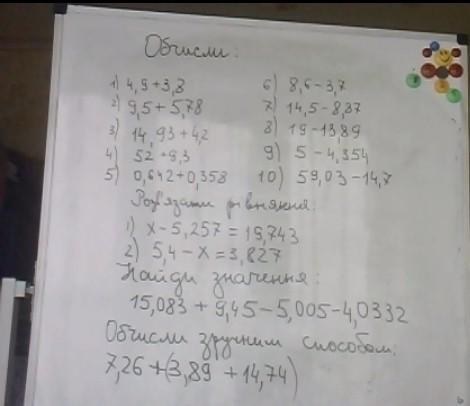 Обчисли:
1) 4,9+3,8
2) 9,5+5,78
3) 14,93+4,2
4) 52+9,3
5) 0,642+0,358
6) 8,6-3,7
7) 14,5-8,37
8) 19-13,89
9) 5-4,354
10) 59,03-14,7
Розв'язати рівняння:
1) x-5,257=19,743
2) 5,4-x=3,827
Знайди значення:
15,083+9,45-5,005-4,0332
Обчисли зручним способом:
7,26+(3,89+14,74)